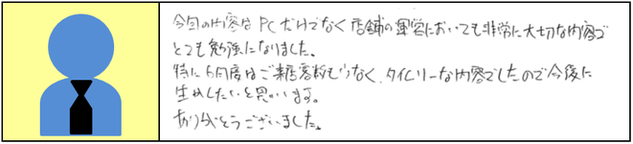 今回の内容はPCだけでなく店舗の運営においても非常に大切な内容で
とても勉強になりました。
特に6月度はご来店客数も少なく、タイムリーな内容でしたので今後に
生かしたいと思います。
ありがとうございました。